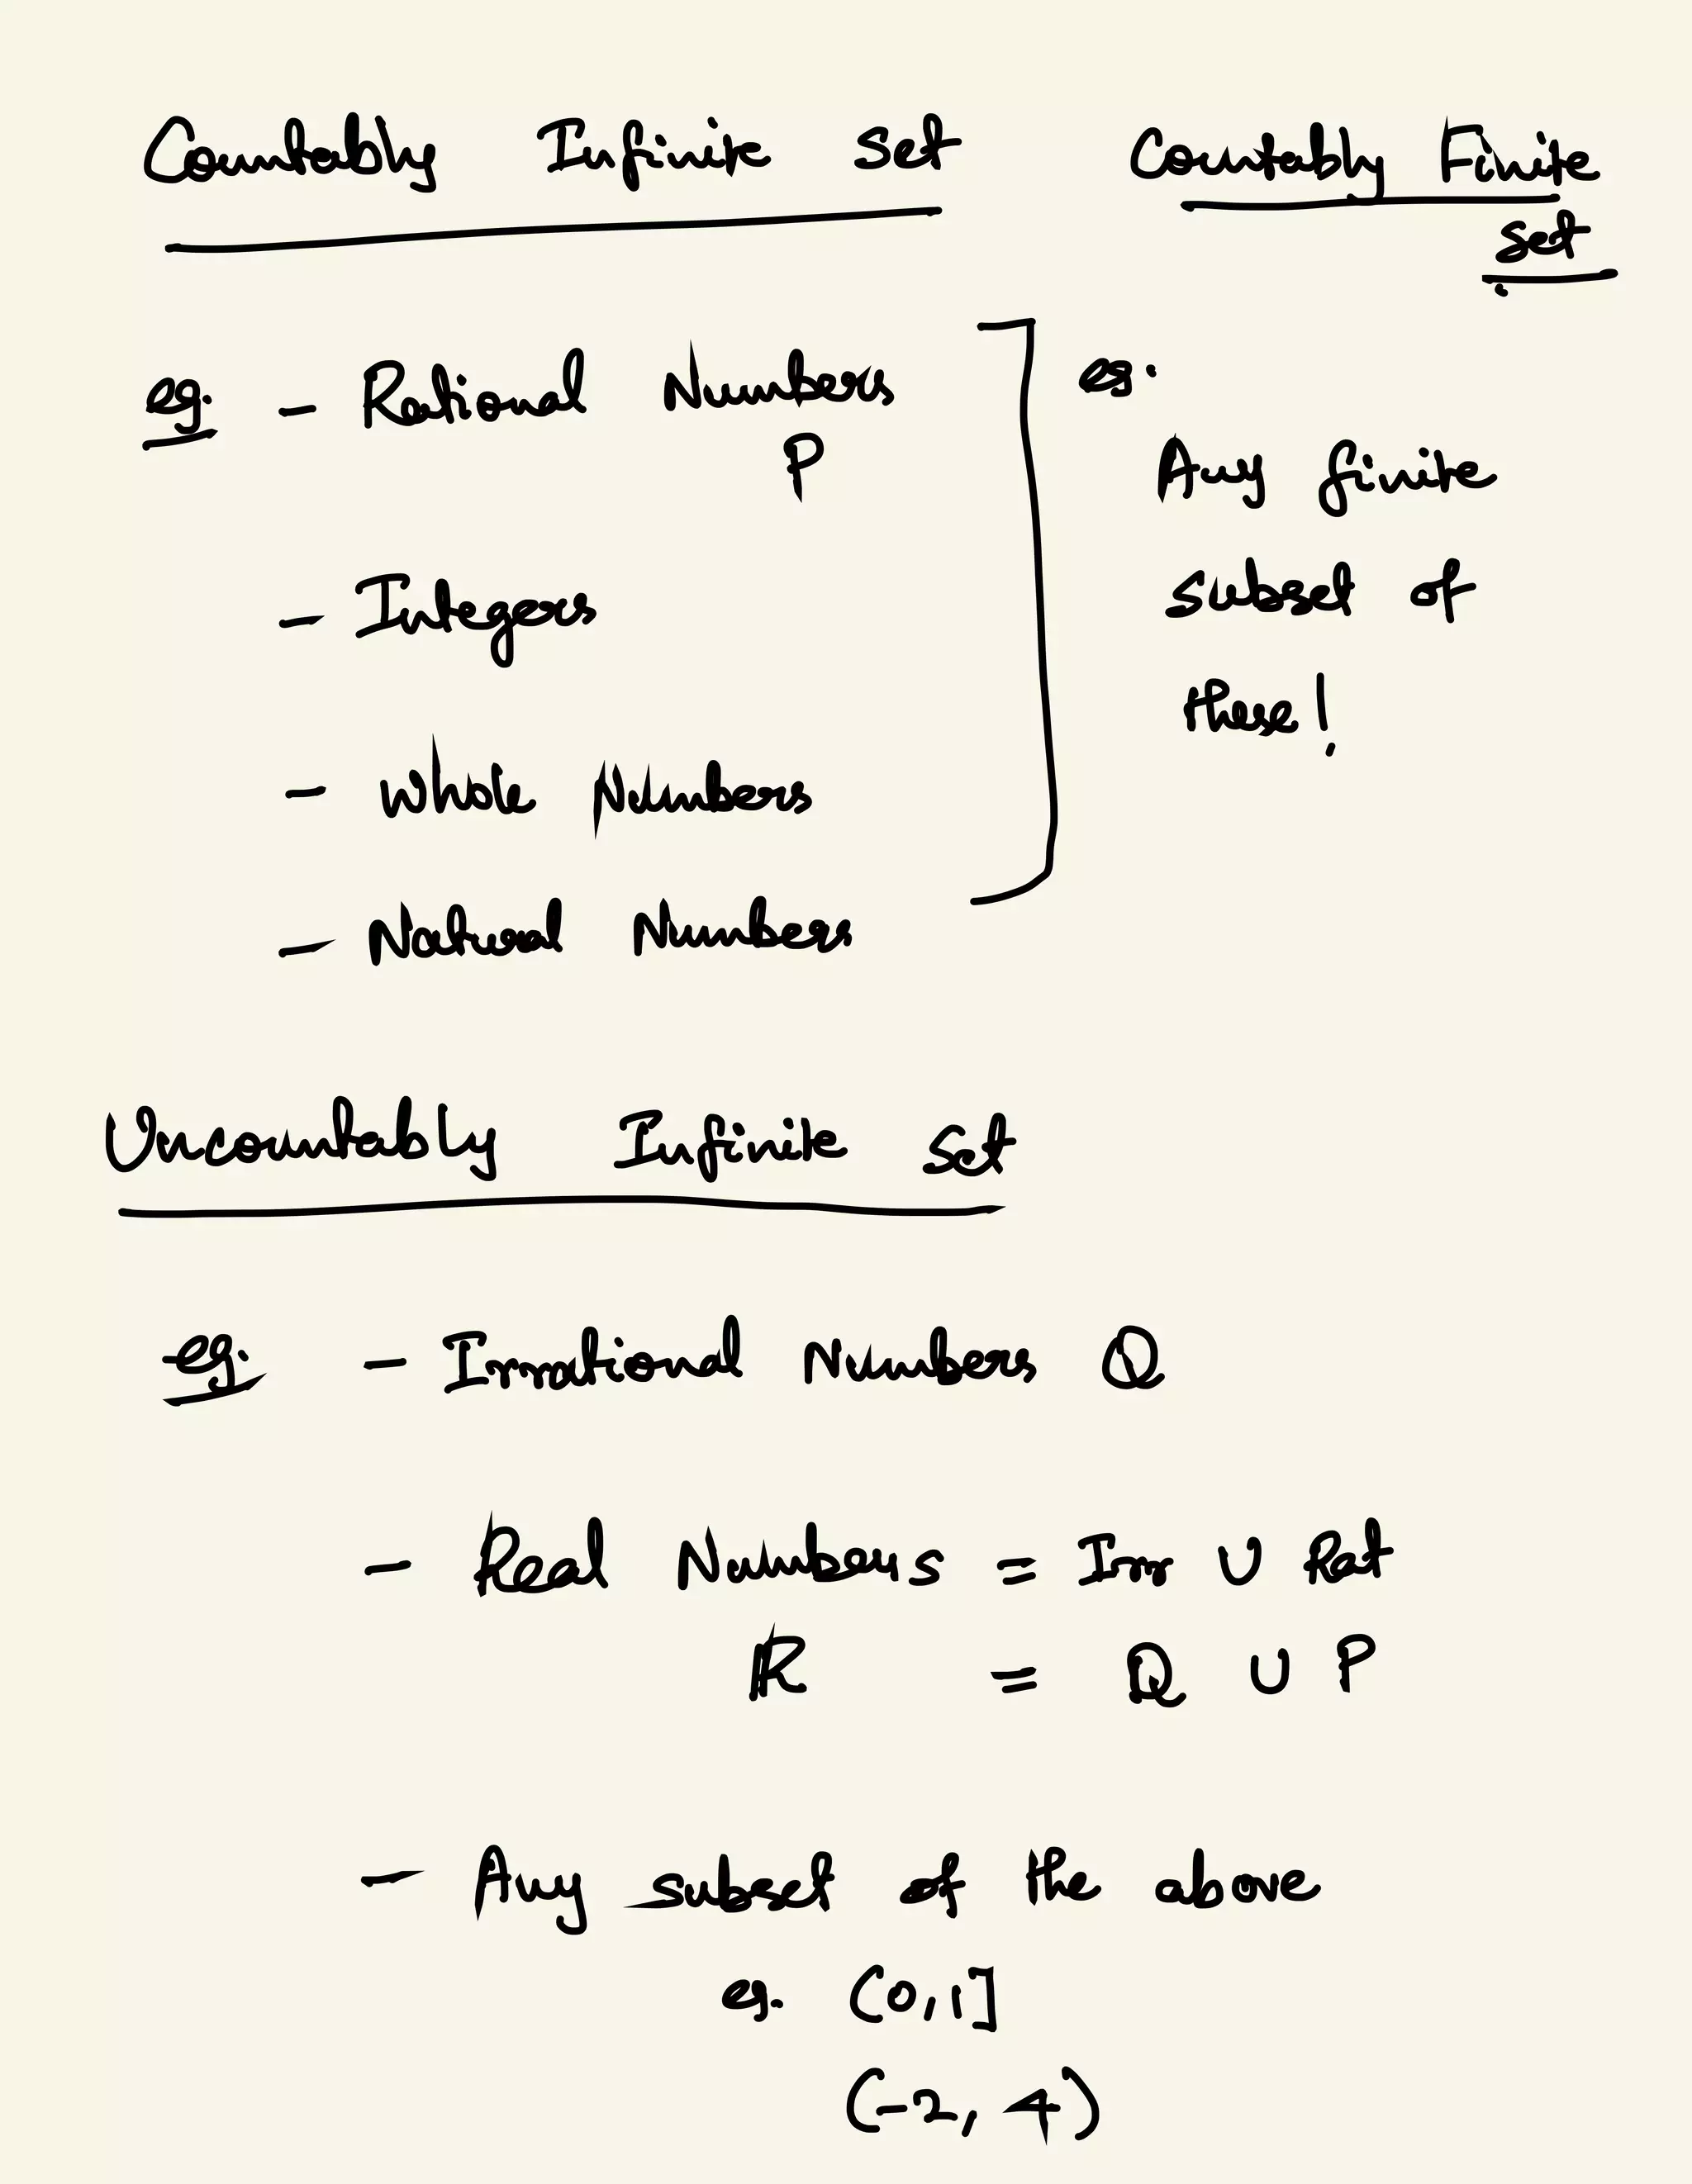 Countably Infinite Set
eg. - Rational Numbers
P
- Integers
- Whole Numbers
- Natural Numbers
Countably Finite
Set
eg.
Any finite
subset of
these!
Uncountably Infinite Set
eg. - Irrational Numbers Q
- Real Numbers = Irr ∪ Rat
ℝ = Q ∪ P
- Any subset of the above
eg. (0,1]
(-2, 4)